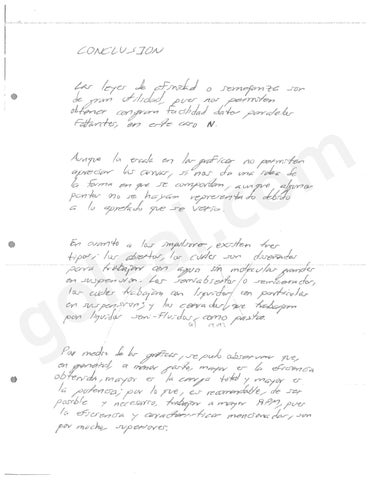 CONCLUSION
Las leyes de afinidad o semejanza son
de gran utilidad, pues nos permiten
obtener con gran facilidad datos puntuales
Faltantes, en este caso N.
Aunque la escala en las gráficas no permiten
apreciar las curvas, si nos da una idea de
la forma en que se comportan, aunque, algunos
puntos no se hayan representado debido
a lo apretado que se veria.
En cuanto a los impulsores, existen tres
tipos: los abiertos, los cuales son diseñados
para trabajar con agua sin moleculas grandes
en suspensión. Los semiabiertos o semicerrados,
los cuales trabajan con liquidos con particulas
en suspension; y los cerrados, que trabajan
con liquidos semi-fluidos, como pasta.
Por medio de las gráficas, se pudo observar que,
en general, a menor gasto, mayor es la eficiencia
obtenida, mayor es la carga total y mayor es
la potencia; por lo que, es recomendable, de ser
posible y necesario, trabajar a mayor RPM, pues
la eficiencia y características mencionadas, son
por mucho superiores.